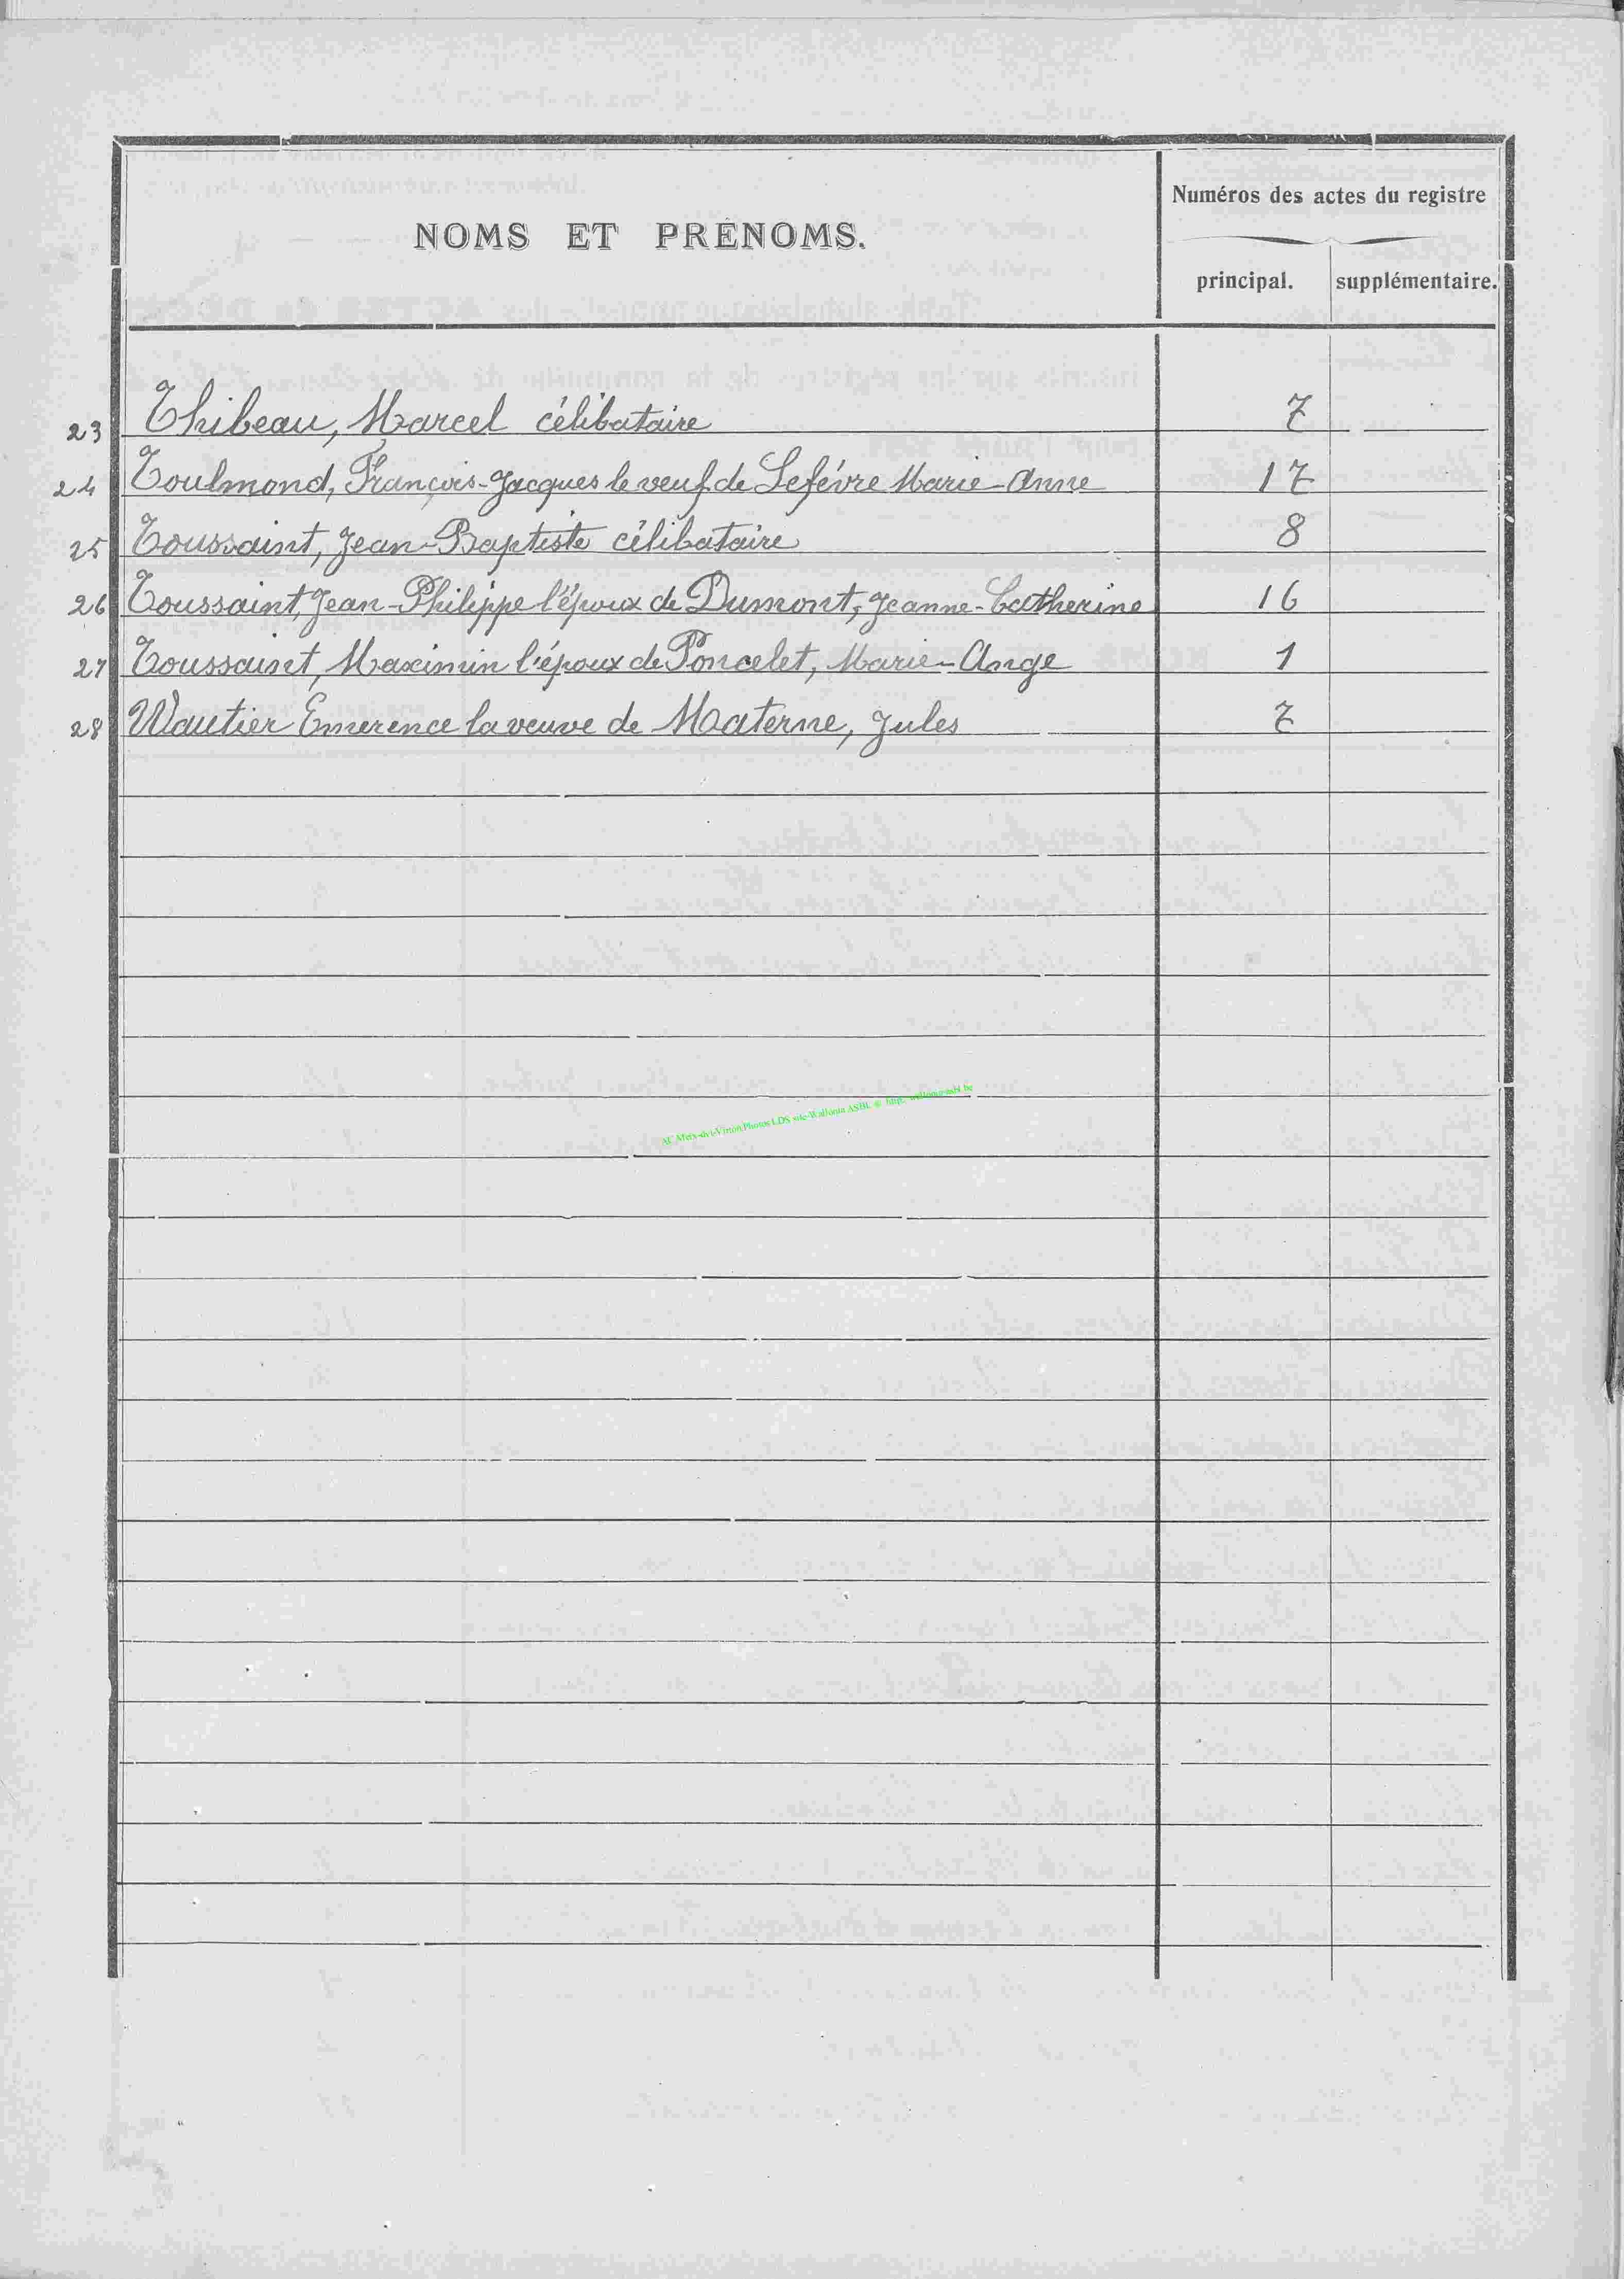 Numéros des actes du registre
NOMS ET PRÉNOMS.
principal. supplémentaire.
23 Thibeau, Marcel célibataire 7
24 Toulmond, François-Jacques le veuf de Lefèvre Marie-Anne 17
25 Toussaint, Jean-Baptiste célibataire 8
26 Toussaint, Jean-Philippe l'époux de Dumont, Jeanne-Catherine 16
27 Toussaint, Maximin l'époux de Poncelet, Marie-Ange 1
28 Wautier Emerence la veuve de Materne, Jules 7
Photos LDS site Wallonia ASBL ©